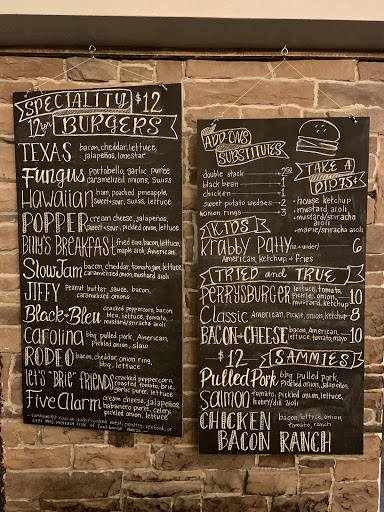 SPECIALITY $12
12 for BURGERS
TEXAS bacon, cheddar, lettuce,
jalapeños, lonestar
Fungus portobello, garlic purée
caramelized onions, Swiss
Hawaiian ham, poached pineapple,
sweet+sour, Swiss, lettuce
POPPER cream cheese, jalapeños,
sweet+sour, pickled onion, lettuce
Billy's BREAKFAST fried egg, bacon, lettuce,
maple aioli, American
Slow Jam bacon, cheddar, tomato jam, lettuce,
caramelized onion, mustard aioli
JIFFY Peanut butter sauce, bacon,
caramelized onions
Black+Bleu cracked peppercorn, bacon,
bleu, lettuce, tomato,
mustard/sriracha aioli
Carolina bbq pulled pork, American,
Pickled onion, slaw
RODEO bacon, cheddar, onion ring,
bbq, lettuce
let's "BRIE" FRIENDS cracked peppercorn,
roasted tomato, brie,
garlic puree, lettuce
Five Alarm cream cheese, jalapeños,
habanero puree, celery
pickled onion, lettuce
- consuming raw or undercooked meat, poultry, seafood, or
eggs may increase risk of foodborne illness -
ADD ONS
SUBSTITUTES
double stack 2.50
black bean 1
chicken 1
sweet potato wedges 2
onion rings 3
TAKE A
DIP
house ketchup
mustard aioli
mustard/sriracha
aioli
maple/sriracha aioli
KIDS
Krabby Patty (12 + under) 6
American, ketchup + fries
TRIED and TRUE
PERRYSBURGER lettuce, tomato,
pickle, onion,
mustard, ketchup 10
Classic American, pickle, onion, ketchup 8
BACON+CHEESE bacon, American,
lettuce, tomato, mayo 10
$12 SAMMIES
Pulled Pork bbq pulled pork,
Pickled onion, jalapeños
Salmon tomato, pickled onion, lettuce,
honey/dill aioli
CHICKEN bacon, lettuce, onion,
tomato, ranch
BACON RANCH